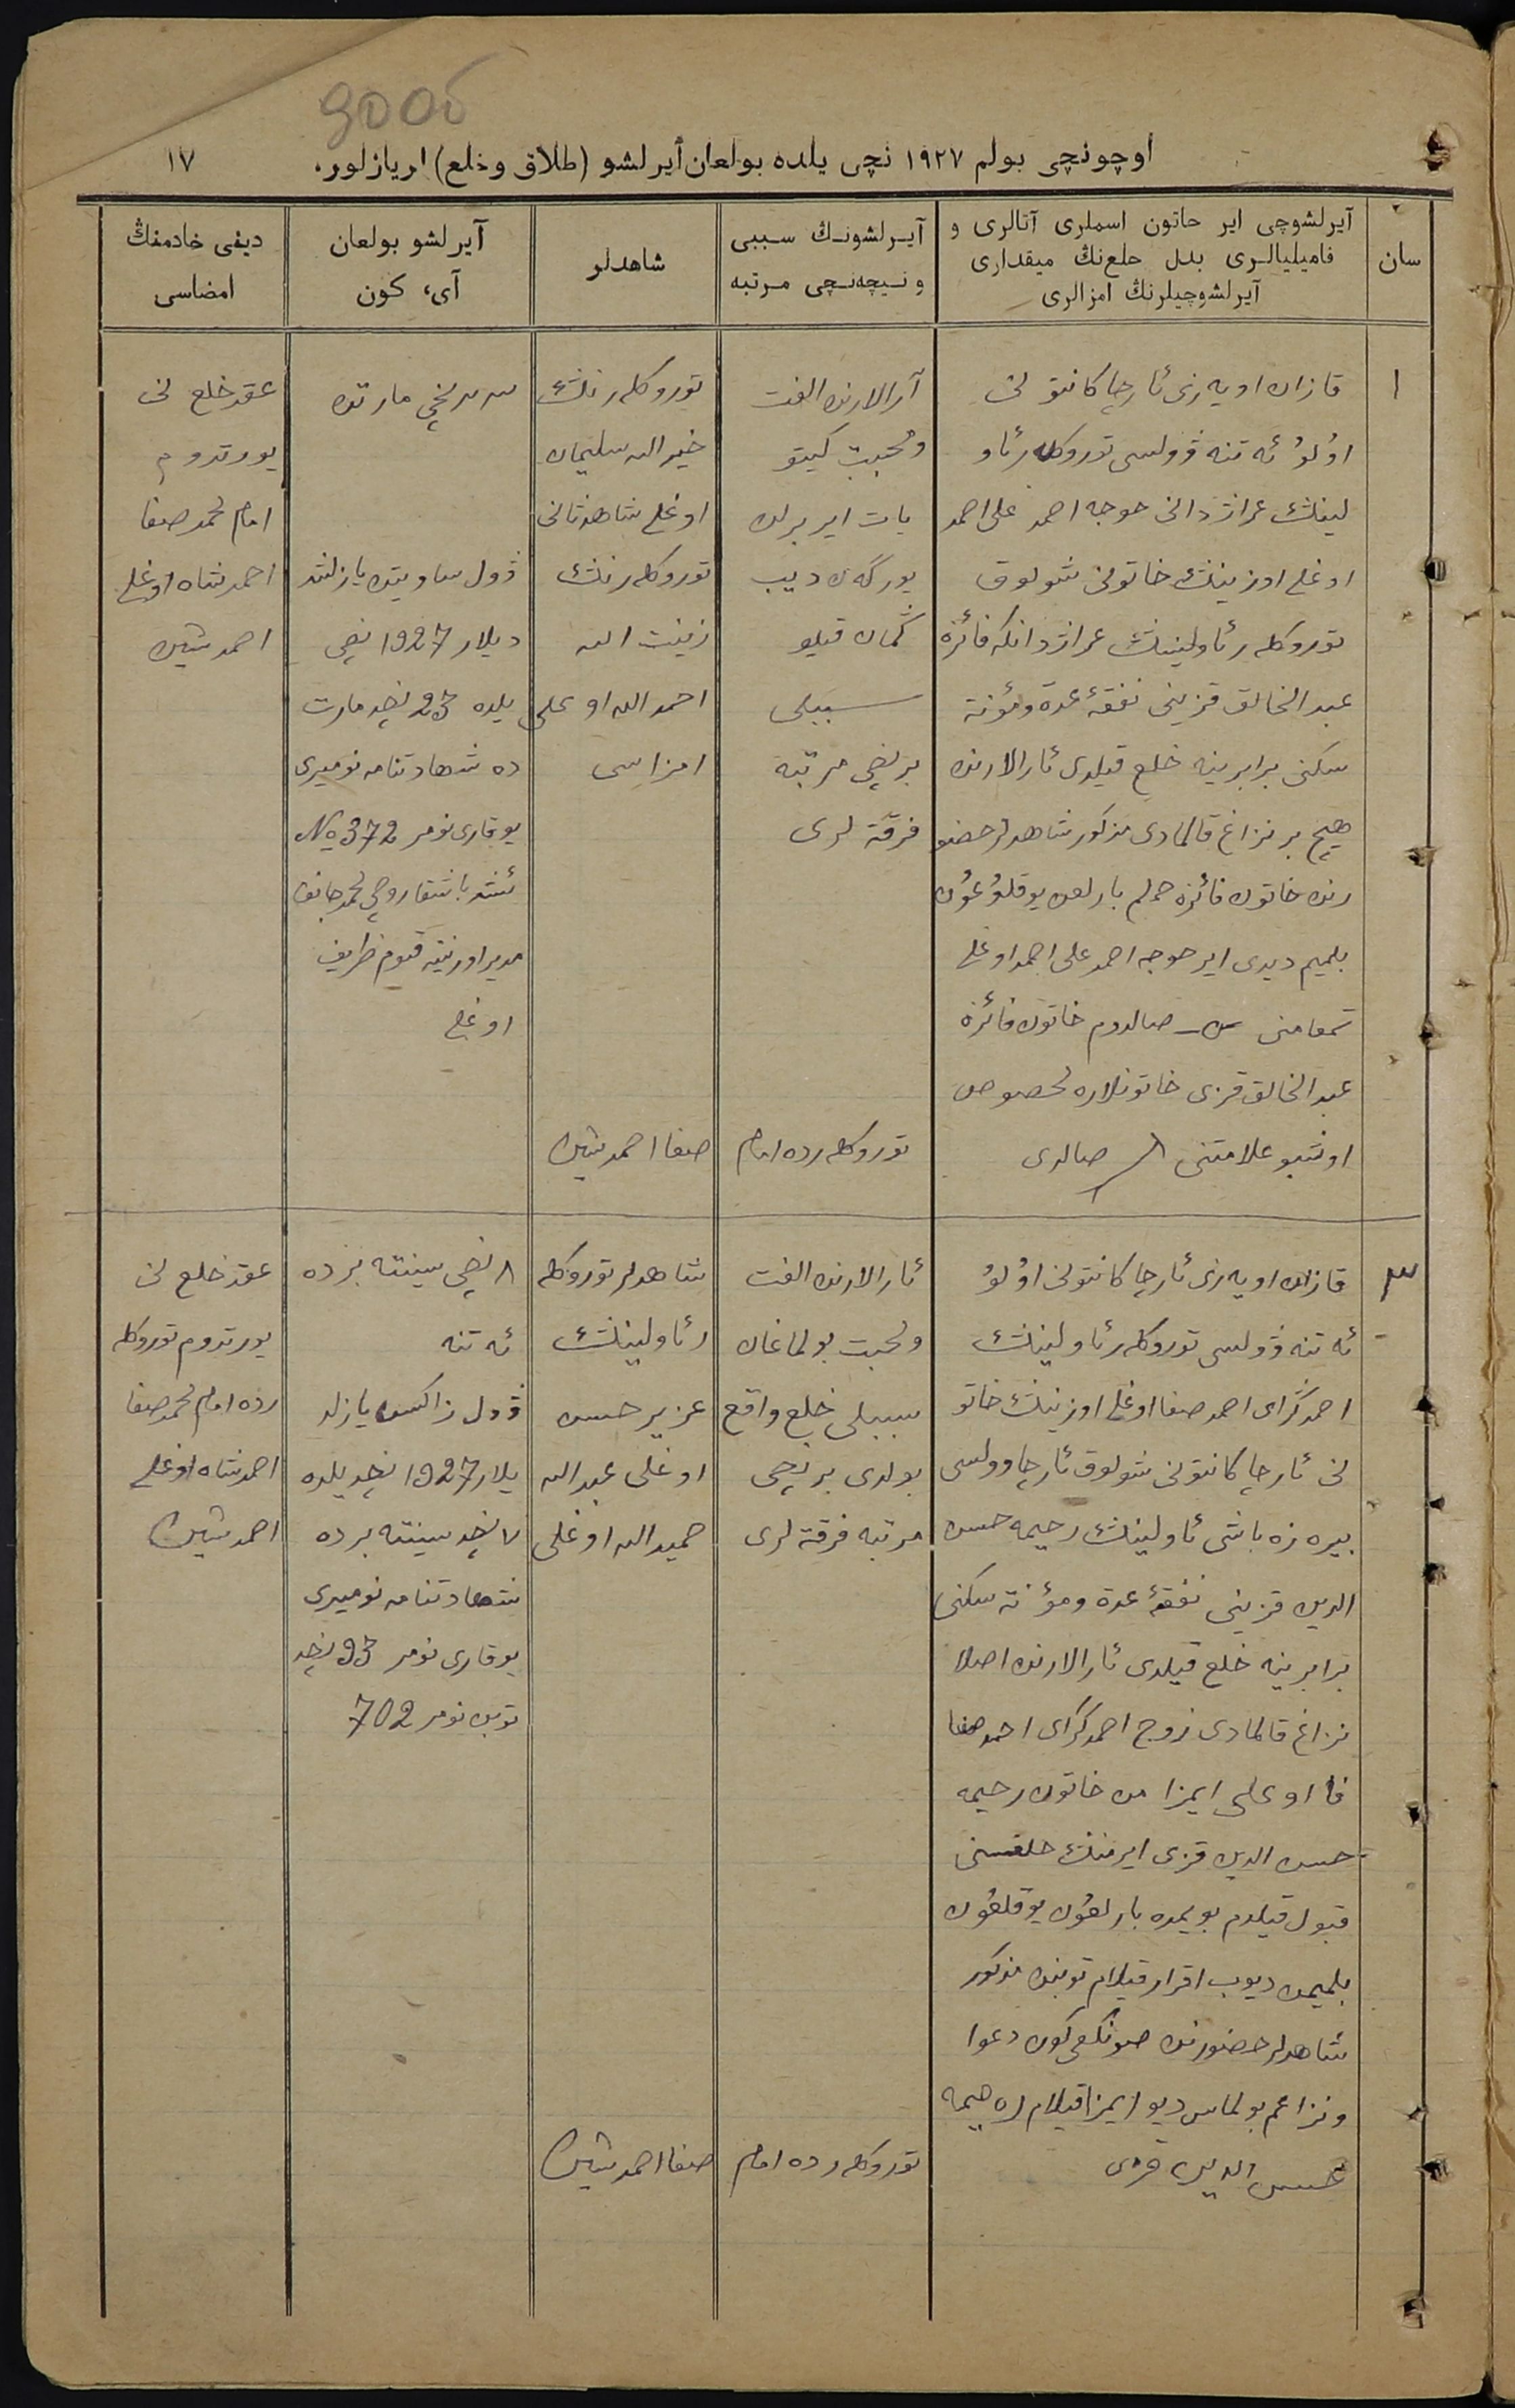 9006
اوچونچی بولم ١٩٢٧ نچی یلده بولعان آیرلشو (طلاق وخلع) اریازلور. ١٧
سان
آیرلشوچی ایر حاتون اسملری آتالری و
فامیلیالری بدل حلع‌نڭ میقداری
آیرلشوچیلرنڭ امزالری
آیـرلشونـڭ سـببی
و نـیچه‌نـچی مـرتبه
شاهدلر
آیرلشو بولعان
آی، کون
دیفی خادمنڭ
امضاسی
١
قازان اویه‌زی ئارچا کانتو نی
اۇلۇ ئه‌تنه ڤولسی توروکله‌ر ئاو
لینڭ عراژدانی حوجه احمد علی احمد
اوغلی اوزینڭ خاتونی شولوق
توروکله‌ر ئاولینڭ عراژدانکه فائزه
عبد الخالق قزینی نفقهٔ عدة ومؤنة
سکنی برابرینه خلع قیلدی ئارالارنده
هیچ بر نزاع قالمادی مذکور شاهدلر حضو
رنده خاتون فائزه حملم بارلعن یوقلۇغۇن
بلمیم دیدی ایر حوجه احمد علی احمد اوغلی
تمغامنی صالدوم خاتون فائزه
عبد الخالق قزی خاتونلاره مخصوص
اوشبو علامتنی صالدی
آرالارنده الفت
ومحبت کیتو
یات ایر برله
یورگه‌ن دیب
گمان قیلو
سببلی
برنچی مرتبه
فرقة لری
توروکله‌رده امام
توروکله‌رنڭ
خیر الله سلیمان
اوغلی شاهد ثانی
توروکله‌رنڭ
زینت الله
احمد الله اوغلی
امزاسی
صفا احمدشین
٢٣نچی مارتده
ڤول ساویتده یازلند
دیلار 1927 نچی
یلده 23 نچه مارت
ده شهادتنامه نومیری
یوقاری نومر 372 №
محمد جانف
مدیر اورنینه قیوم ظریف
اوغلی
عقد خلع نی
یورتدوم
امام محمد صفا
احمد شاه اوغلی
احمدشین
٢
قازان اویه‌زی ئارچا کانتونی اۇلۇ
ئه‌تنه ڤولسی توروکله‌ر ئاولینڭ
احمد گرای احمد صفا اوغلی اوزینڭ خاتو
نی ئارچا کانتونی شولوق ئارچا وولسی
بیره‌زه باشی ئاولینڭ رحیمه حسن
الدین قزینی نفقهٔ عدة ومؤنة سکنی
برابرینه خلع قیلدی ئارالارنده اصلا
نزاع قالمادی زوج احمد گرای احمد صفا
فا اوغلی ایمزا من خاتون رحیمه
حسن الدین قزی ایرمنڭ خلعسنی
قبول قیلدم بویمده بارلغون یوقلغون
بلمیمن دیوب اقرار قیلام توبنده مذکور
شاهدلر حضورنده صونگعی کون دعوا
ونزاعم بولماس دیو ایمزا قیلام رحیمه
حسن الدین قزی
ئارالارنده الفت
ومحبت بولماغان
سببلی خلع واقع
بولدی برنچی
مرتبه فرقة لری
توروکله‌رده امام
شاهدلر توروکله
ر ئاولینڭ
عزیر حسن
اوغلی عبد الله
حمید الله اوغلی
صفا احمدشین
٨ نچی سینته‌بزده
ئه‌تنه
ڤول زاکسده یازلد
یلار 1927 نچه یلده
٧ نچه سینته‌برده
شهادتنامه نومیری
یوقاری نومر 93 نچه
توبن نومر 702
عقد خلع نی
یورتدوم توروکله
رده امام محمد صفا
احمد شاه اوغلی
احمدشین